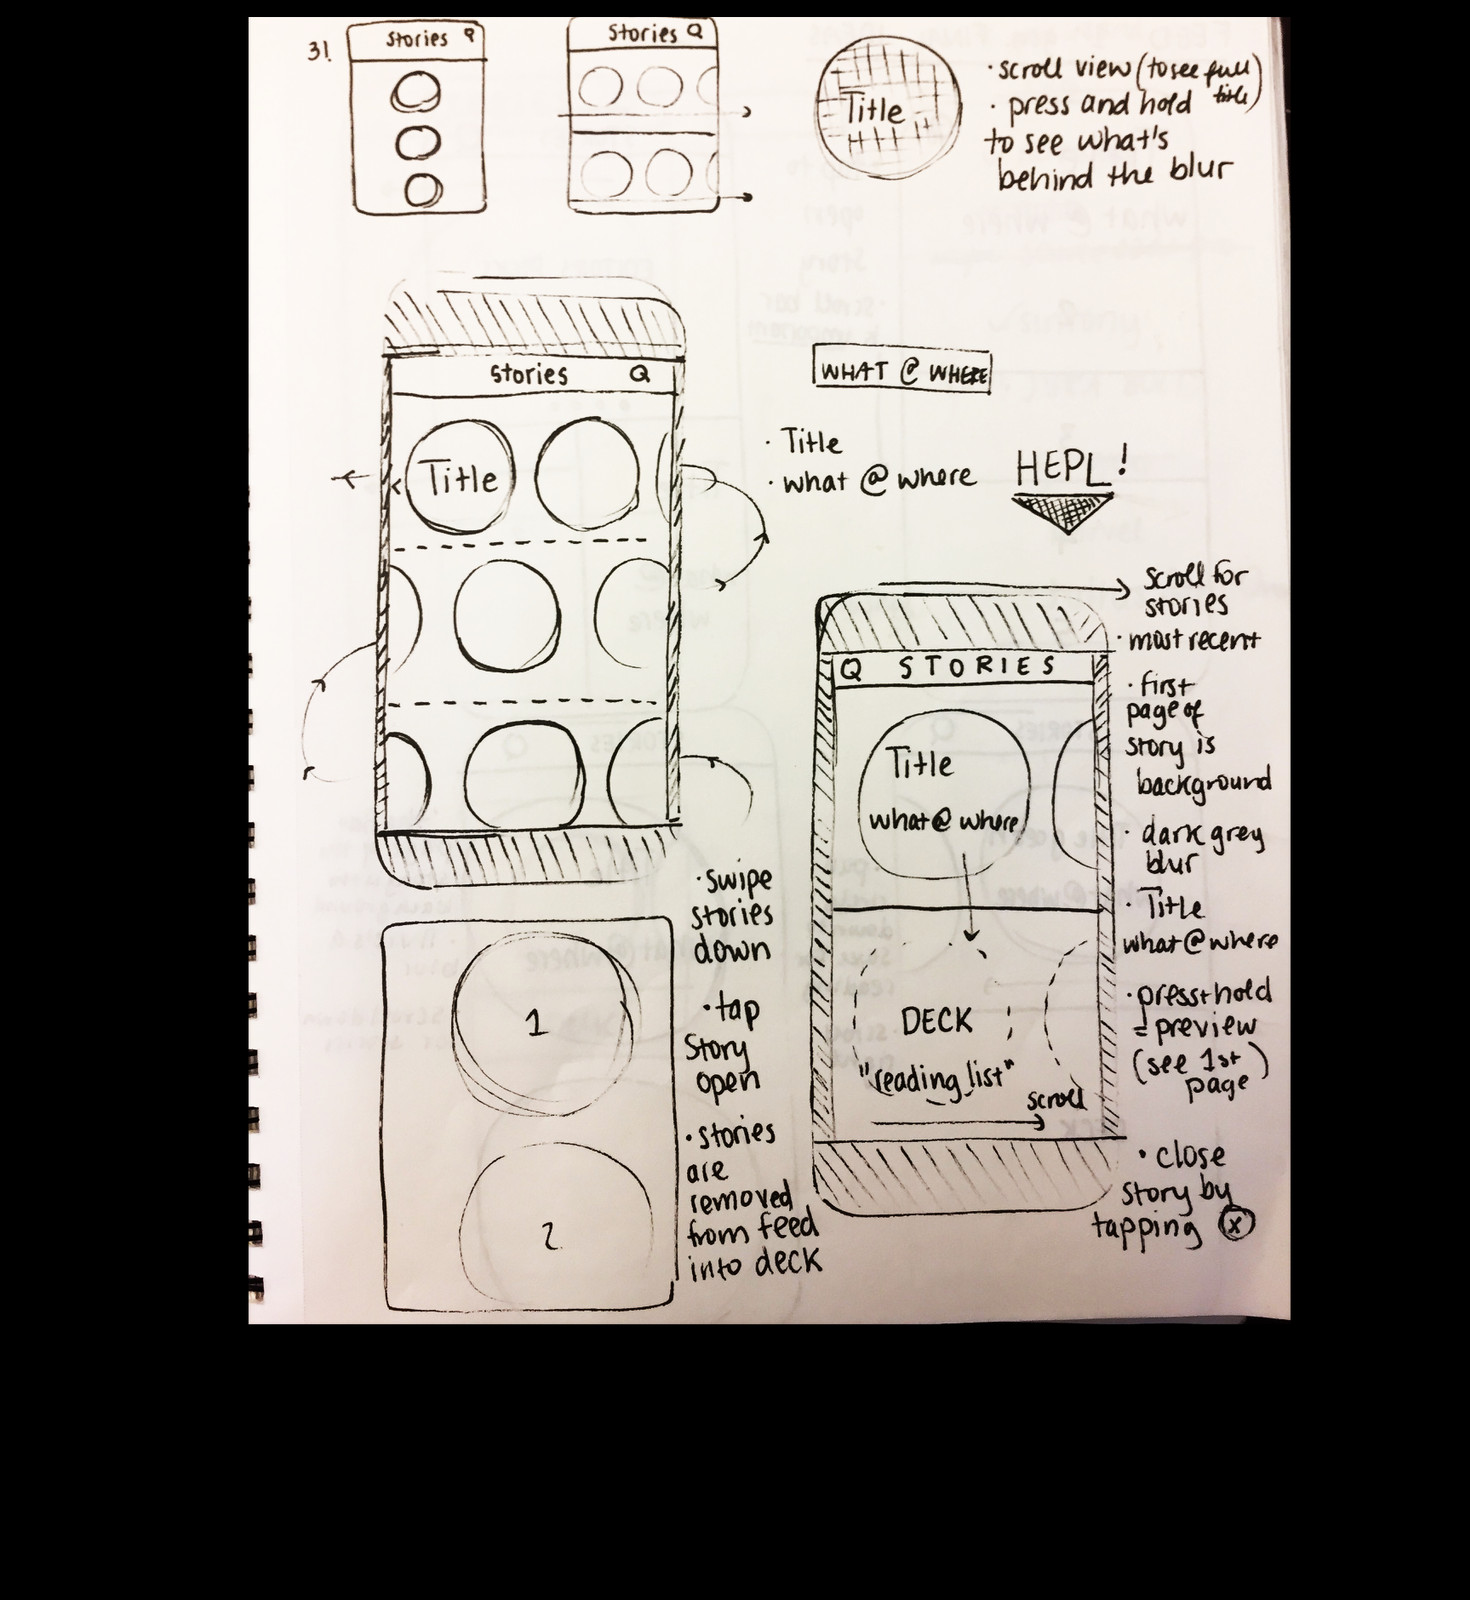 31.
Stories Q
Stories Q
Title
· scroll view (to see full
title)
· press and hold
to see what's
behind the blur
Stories Q
Title
WHAT @ WHERE
· Title
· what @ where
HEPL!
scroll for
stories
· most recent
· first
page of
story is
background
· dark grey
blur
· Title
what @ where
· press+hold
= preview
(see 1st
page)
· close
story by
tapping X
Q STORIES
Title
what @ where
DECK
"reading list"
scroll
· swipe
stories
down
· tap
story
open
· stories
are
removed
from feed
into deck
1
2